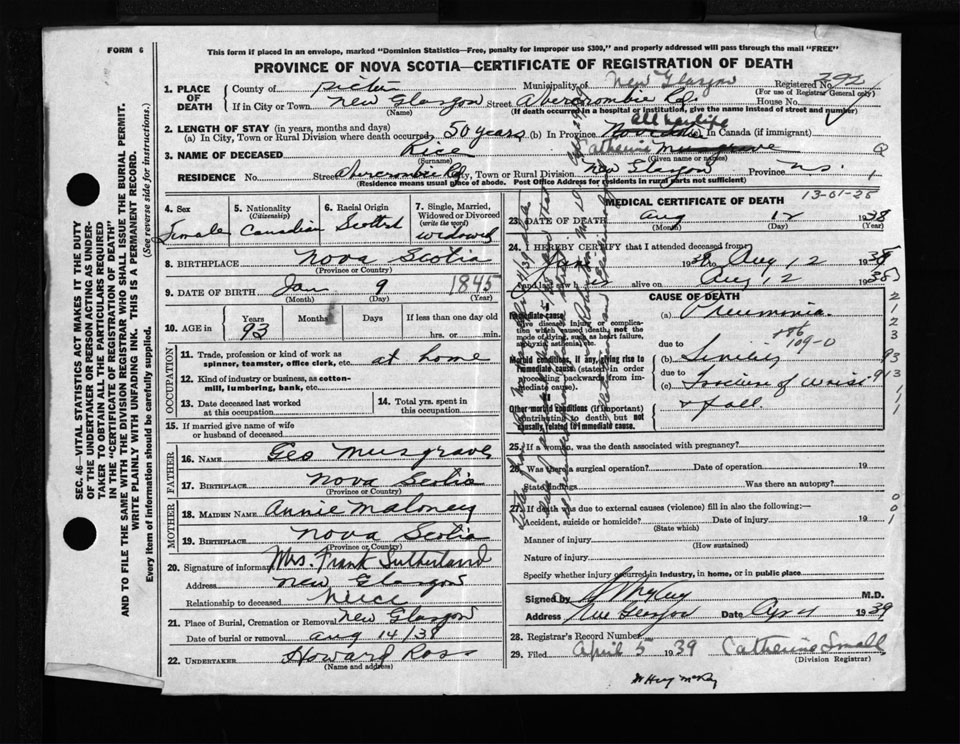 FORM 6
This form if placed in an envelope, marked "Dominion Statistics—Free, penalty for improper use $300," and properly addressed will pass through the mail "FREE"
PROVINCE OF NOVA SCOTIA—CERTIFICATE OF REGISTRATION OF DEATH
1. PLACE OF DEATH
County of Pictou Municipality of New Glasgow Registered No. 392
(For use of Registrar General only)
If in City or Town New Glasgow Street Abercrombie Rd House No.
(Name) (If death occurred in a hospital or institution, give the name instead of street and number)
2. LENGTH OF STAY (in years, months and days)
(a) In City, Town or Rural Division where death occurred 50 years (b) In Province all her life (c) In Canada (if immigrant)
3. NAME OF DECEASED Rice Catherine Musgrave
(Surname) (Given name or names)
RESIDENCE No. Street Abercrombie Rd City, Town or Rural Division New Glasgow Province N.S.
(Residence means usual place of abode. Post Office Address for residents in rural parts not sufficient)
4. Sex Female
5. Nationality (Citizenship) Canadian
6. Racial Origin Scottish
7. Single, Married, Widowed or Divorced (write the word) Widowed
8. BIRTHPLACE Nova Scotia
(Province or Country)
9. DATE OF BIRTH Jan 9 1845
(Month) (Day) (Year)
10. AGE in Years Months Days If less than one day old
93 hrs. or min.
OCCUPATION
11. Trade, profession or kind of work as spinner, teamster, office clerk, etc. at home
12. Kind of industry or business, as cotton-mill, lumbering, bank, etc.
13. Date deceased last worked at this occupation
14. Total yrs. spent in this occupation
15. If married give name of wife or husband of deceased
FATHER
16. NAME Geo Musgrave
17. BIRTHPLACE Nova Scotia
(Province or Country)
MOTHER
18. MAIDEN NAME Annie Maloney
19. BIRTHPLACE Nova Scotia
(Province or Country)
20. Signature of informant Mrs. Frank Sutherland
Address New Glasgow
Relationship to deceased Niece
21. Place of Burial, Cremation or Removal New Glasgow
Date of burial or removal Aug 14/38
22. UNDERTAKER Howard Ross
(Name and address)
MEDICAL CERTIFICATE OF DEATH
13-01-25
23. DATE OF DEATH Aug 12 1938
(Month) (Day) (Year)
24. I HEREBY CERTIFY that I attended deceased from
Jan 19 to Aug 12 1938
and last saw alive on Aug 12 1938
CAUSE OF DEATH
Immediate cause
Give disease, injury or complication which caused death, not the mode of dying, such as heart failure, asphyxia, asthenia, etc.
(a) Pneumonia
186
109-0
due to
Morbid conditions, if any, giving rise to immediate cause (stated in order proceeding backwards from immediate cause).
(b) Senility
due to
(c)
& fall.
Other morbid conditions (if important) contributing to death but not causally related to immediate cause.
25. If a woman, was the death associated with pregnancy?
26. Was there a surgical operation? Date of operation 19
State findings Was there an autopsy?
27. If death was due to external causes (violence) fill in also the following:—
Accident, suicide or homicide? Date of injury 19
(State which)
Manner of injury
(How sustained)
Nature of injury
Specify whether injury occurred in industry, in home, or in public place
Signed by M.D.
Address New Glasgow Date 1939
28. Registrar's Record Number
29. Filed April 5 1939 Catherine Small
(Division Registrar)
SEC. 46—VITAL STATISTICS ACT MAKES IT THE DUTY OF THE UNDERTAKER OR PERSON ACTING AS UNDERTAKER TO OBTAIN ALL THE PARTICULARS REQUIRED IN THE "CERTIFICATE OF REGISTRATION OF DEATH" AND TO FILE THE SAME WITH THE DIVISION REGISTRAR WHO SHALL ISSUE THE BURIAL PERMIT.
WRITE PLAINLY WITH UNFADING INK. THIS IS A PERMANENT RECORD.
Every item of information should be carefully supplied. (See reverse side for instructions.)